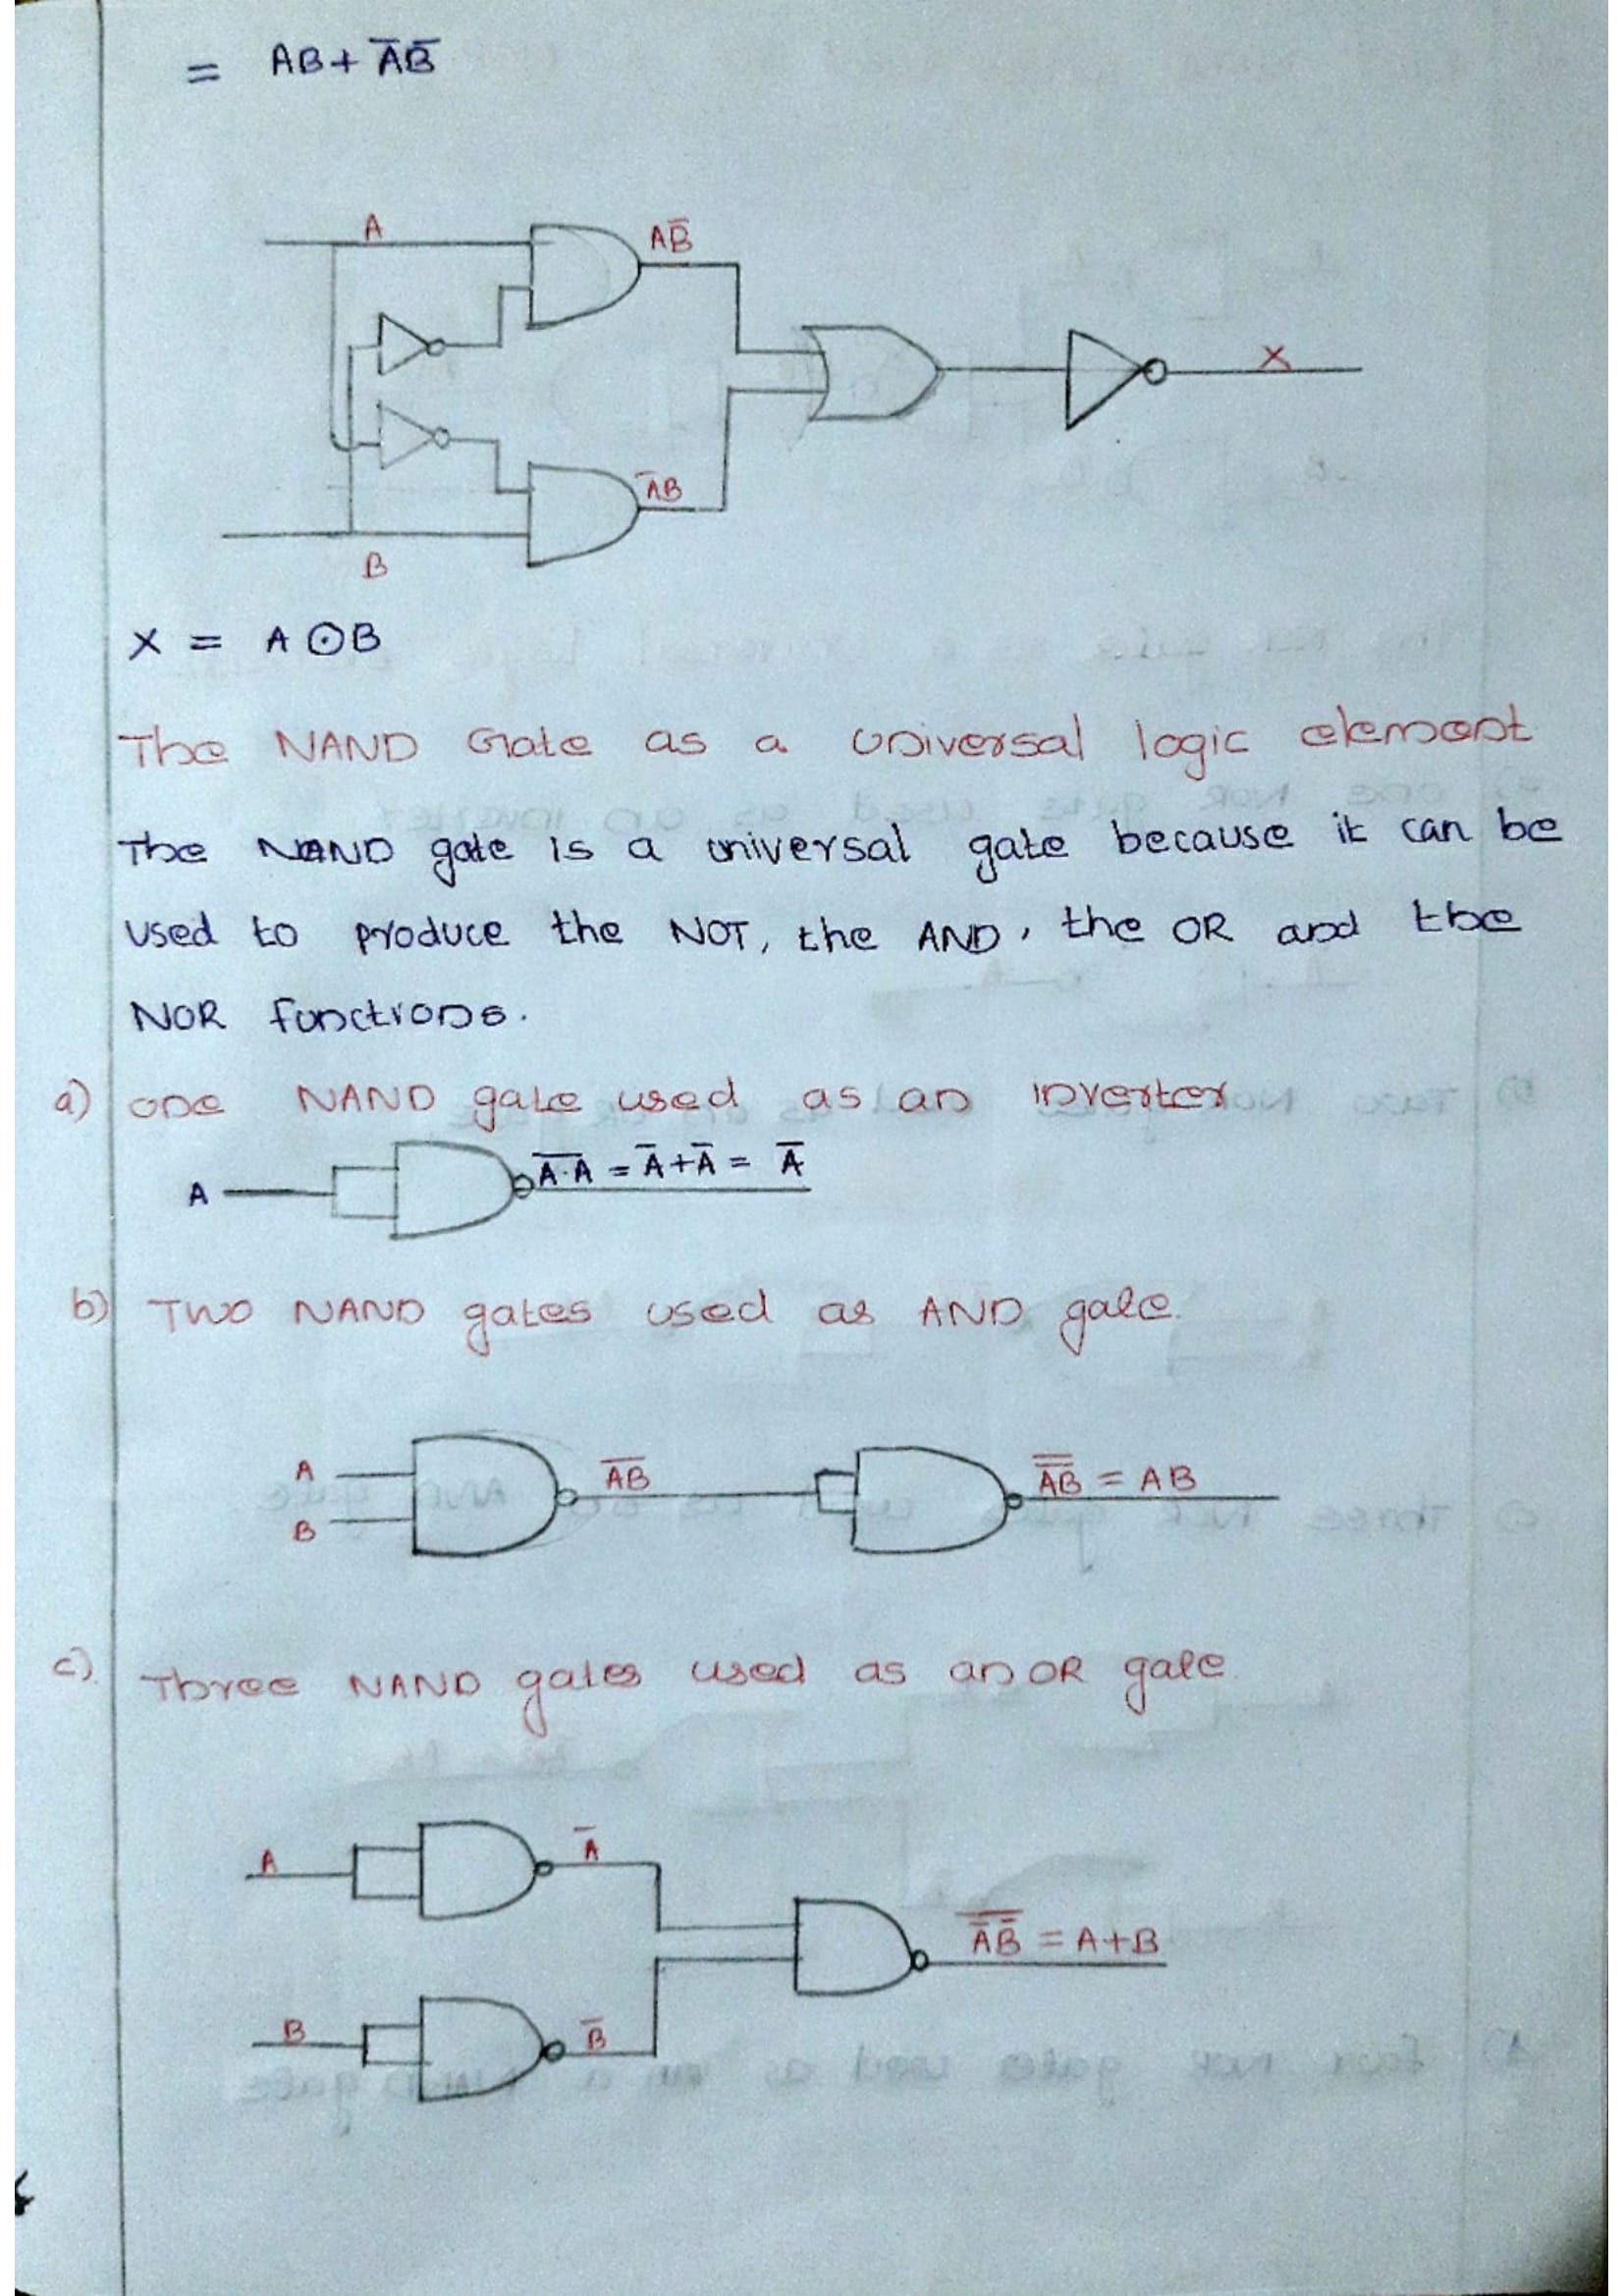 = AB + A̅B̅
A
AB̅
X
A̅B
B
X = A⊙B
The NAND Gate as a universal logic element
The NAND gate is a universal gate because it can be
used to produce the NOT, the AND, the OR and the
NOR functions.
a) one NAND gate used as an inverter
A
A̅·̅A̅ = A̅ + A̅ = A̅
b) Two NAND gates used as AND gate.
A
B
A̅B̅
A̿B̿ = AB
c). Three NAND gates used as an OR gate
A
A̅
A̿B̿ = A+B
B
B̅